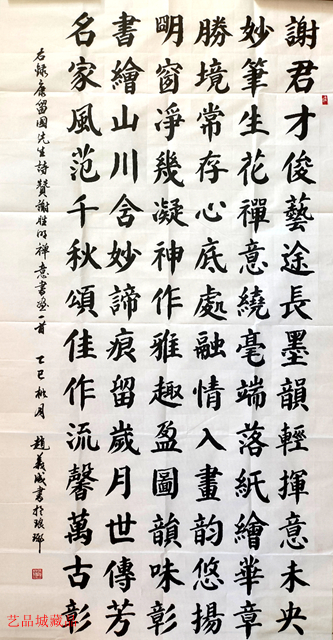 謝君才俊藝途長墨韻輕揮意未央
妙筆生花禪意繞毫端落紙繪華章
勝境常存心底處融情入畫韵悠揚
明窗凈幾凝神作雅趣盈圖韻味彰
書繪山川含妙諦痕留歲月世傳芳
名家風范千秋頌佳作流馨萬古彰
右錄康留國先生詩贊謝胜利禪意書畫一首 乙巳桃月 趙義成書於琅琊
艺品城藏